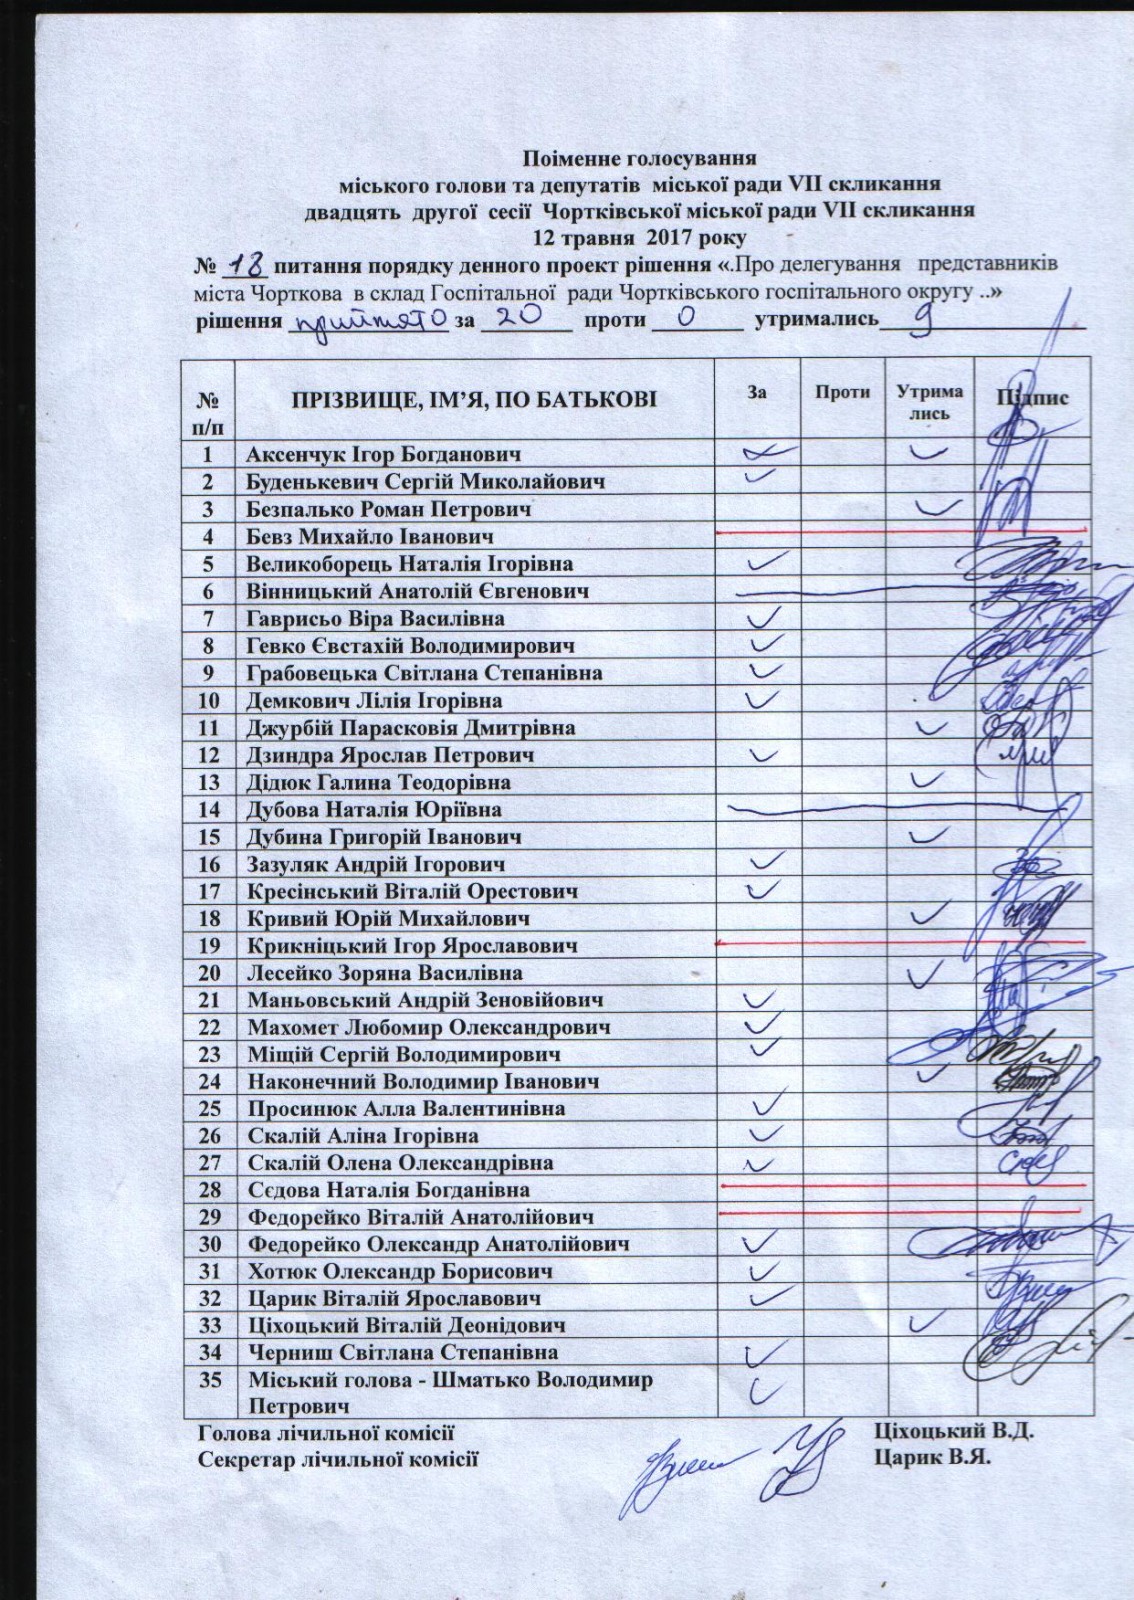 Поіменне голосування
міського голови та депутатів міської ради VII скликання
двадцять другої сесії Чортківської міської ради VII скликання
12 травня 2017 року
№ 18 питання порядку денного проект рішення «.Про делегування представників
міста Чорткова в склад Госпітальної ради Чортківського госпітального округу ..»
рішення прийнято за 20 проти 0 утримались 9
№ п/п ПРІЗВИЩЕ, ІМ’Я, ПО БАТЬКОВІ За Проти Утрима лись Підпис
1 Аксенчук Ігор Богданович
2 Буденькевич Сергій Миколайович
3 Безпалько Роман Петрович
4 Бевз Михайло Іванович
5 Великоборець Наталія Ігорівна
6 Вінницький Анатолій Євгенович
7 Гаврисьо Віра Василівна
8 Гевко Євстахій Володимирович
9 Грабовецька Світлана Степанівна
10 Демкович Лілія Ігорівна
11 Джурбій Парасковія Дмитрівна
12 Дзиндра Ярослав Петрович
13 Дідюк Галина Теодорівна
14 Дубова Наталія Юріївна
15 Дубина Григорій Іванович
16 Зазуляк Андрій Ігорович
17 Кресінський Віталій Орестович
18 Кривий Юрій Михайлович
19 Крикніцький Ігор Ярославович
20 Лесейко Зоряна Василівна
21 Маньовський Андрій Зеновійович
22 Махомет Любомир Олександрович
23 Міщій Сергій Володимирович
24 Наконечний Володимир Іванович
25 Просинюк Алла Валентинівна
26 Скалій Аліна Ігорівна
27 Скалій Олена Олександрівна
28 Сєдова Наталія Богданівна
29 Федорейко Віталій Анатолійович
30 Федорейко Олександр Анатолійович
31 Хотюк Олександр Борисович
32 Царик Віталій Ярославович
33 Ціхоцький Віталій Деонідович
34 Черниш Світлана Степанівна
35 Міський голова - Шматько Володимир
Петрович
Голова лічильної комісії Ціхоцький В.Д.
Секретар лічильної комісії Царик В.Я.